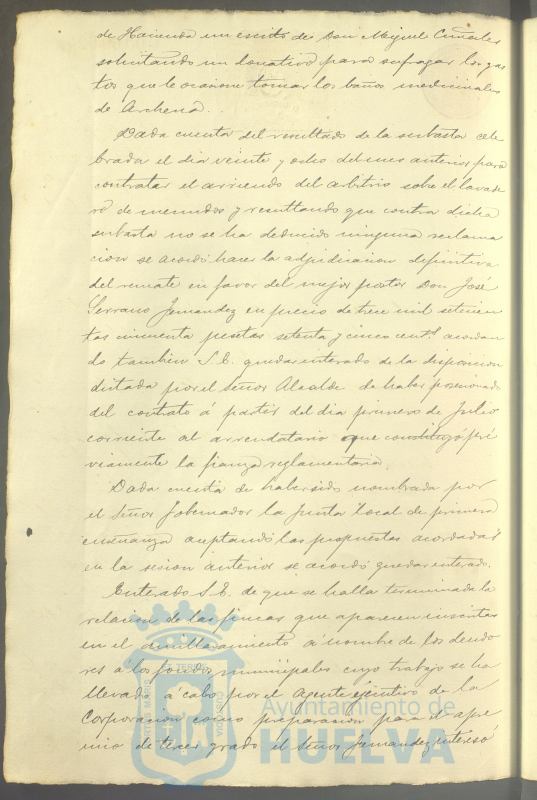 de Hacienda un escrito de Don Miguel Cañales
solicitando un donativo para sufragar los gas
tos que le ocasione tomar los baños medicinales
de Archena.
Dada cuenta del resultado de la subasta cele
brada el dia veinte y ocho del mes anterior para
contratar el arriendo del arbitrio sobre el lavade
ro de menudos y resultando que contra dicha
subasta no se ha deducido ninguna reclama
cion se acordó hacer la adjudicacion definitiva
del remate en favor del mejor postor Don José
Serrano Fernandez en precio de trece mil setecien
tas cincuenta pesetas setenta y cinco cents. acordan
do tambien S.E. quedar enterado de la disposicion
dictada por el Señor Alcalde de haber posesionado
del contrato á partir del dia primero de Julio
corriente al arrendatario que constituyó pré
viamente la fianza reglamentaria.
Dada cuenta de haber sido nombrada por
el Señor Gobernador la Junta local de primera
enseñanza aceptando las propuestas acordadas
en la sesion anterior se acordó quedar enterado.
Enterado S.E. de que se halla terminada la
relacion de las fincas que aparecen inscritas
en el amillaramiento á nombre de los deudo
res á los fondos municipales cuyo trabajo se ha
llevado á cabo por el Agente ejecutivo de la
Corporacion como preparacion para el apre
mio de tercer grado el Señor Fernandez interesó
Ayuntamiento de
HUELVA